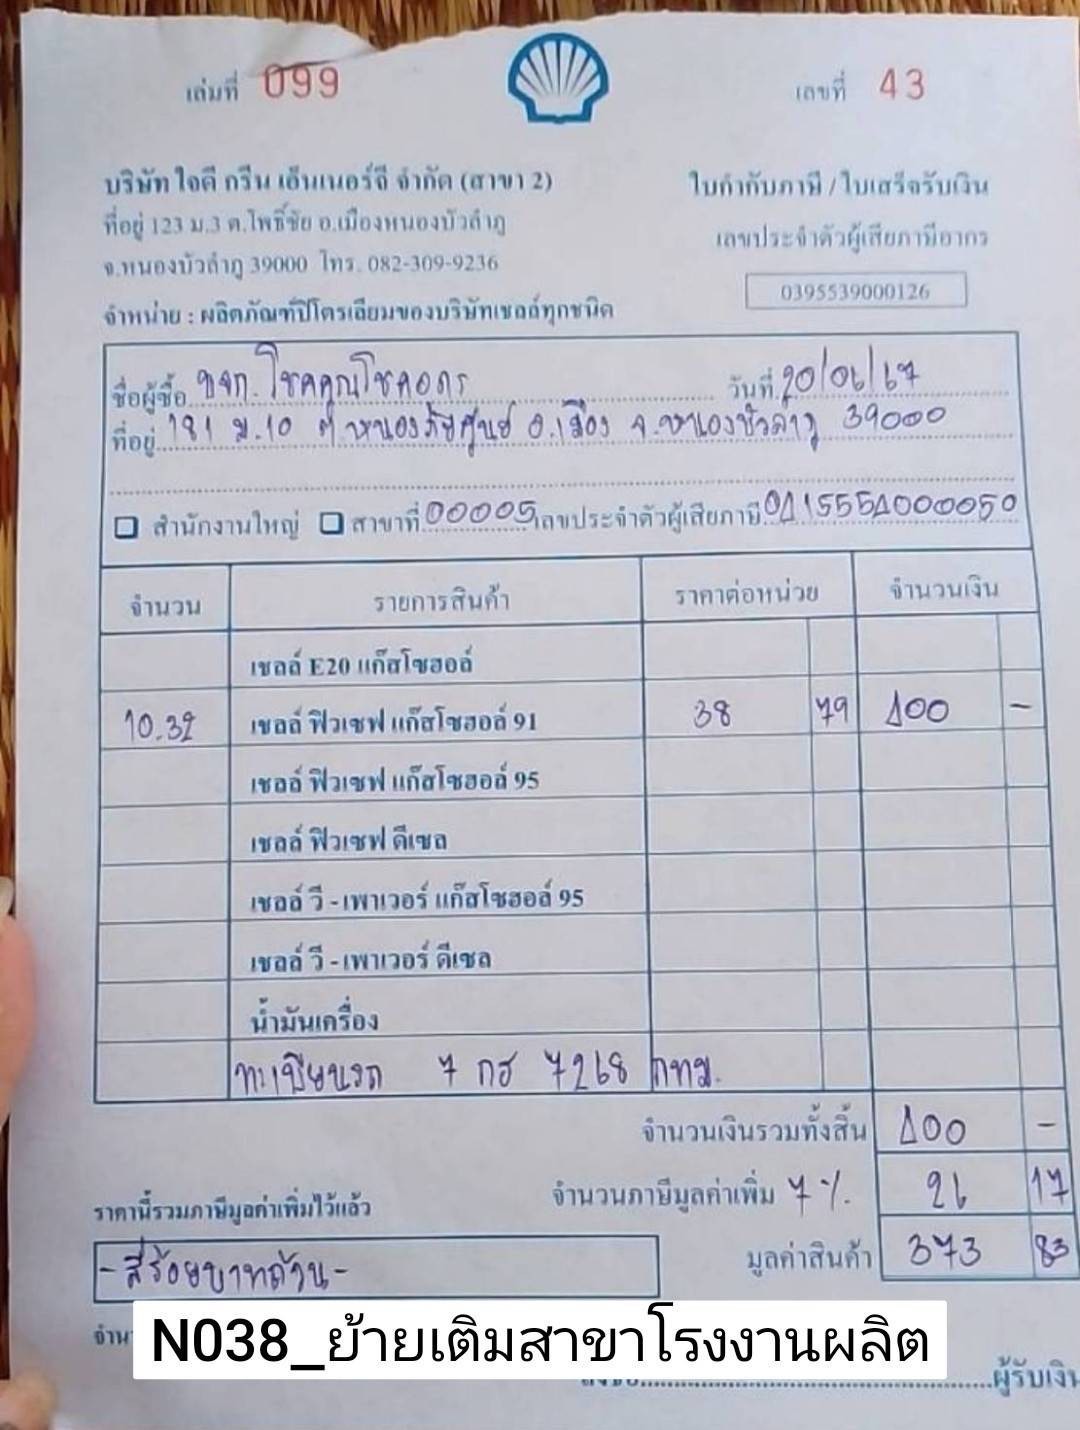 เล่มที่ 099
เลขที่ 43
บริษัท ใจดี กรีน เอ็นเนอร์จี จำกัด (สาขา 2)
ใบกำกับภาษี / ใบเสร็จรับเงิน
ที่อยู่ 123 ม.3 ต.โพธิ์ชัย อ.เมืองหนองบัวลำภู
เลขประจำตัวผู้เสียภาษีอากร
จ.หนองบัวลำภู 39000 โทร. 082-309-9236
0395539000126
จำหน่าย : ผลิตภัณฑ์ปิโตรเลียมของบริษัทเชลล์ทุกชนิด
ชื่อผู้ซื้อ หจก. โชคคูณโชค วันที่ 20/06/67
ที่อยู่ 181 ม.10 ต.หนองภัยศูนย์ อ.เมือง จ.หนองบัวลำภู 39000
สำนักงานใหญ่ สาขาที่ 00005 เลขประจำตัวผู้เสียภาษี
จำนวน รายการสินค้า ราคาต่อหน่วย จำนวนเงิน
เชลล์ E20 แก๊สโซฮอล์
10.32 เชลล์ ฟิวเซฟ แก๊สโซฮอล์ 91 38 79 400 -
เชลล์ ฟิวเซฟ แก๊สโซฮอล์ 95
เชลล์ ฟิวเซฟ ดีเซล
เชลล์ วี - เพาเวอร์ แก๊สโซฮอล์ 95
เชลล์ วี - เพาเวอร์ ดีเซล
น้ำมันเครื่อง
ทะเบียนรถ 7 กฮ 7268 กทม.
จำนวนเงินรวมทั้งสิ้น 400 -
ราคานี้รวมภาษีมูลค่าเพิ่มไว้แล้ว
จำนวนภาษีมูลค่าเพิ่ม 7 %. 26 17
มูลค่าสินค้า 373 83
- สี่ร้อยบาทถ้วน -
N038_ย้ายเติมสาขาโรงงานผลิต
ผู้รับเงิน